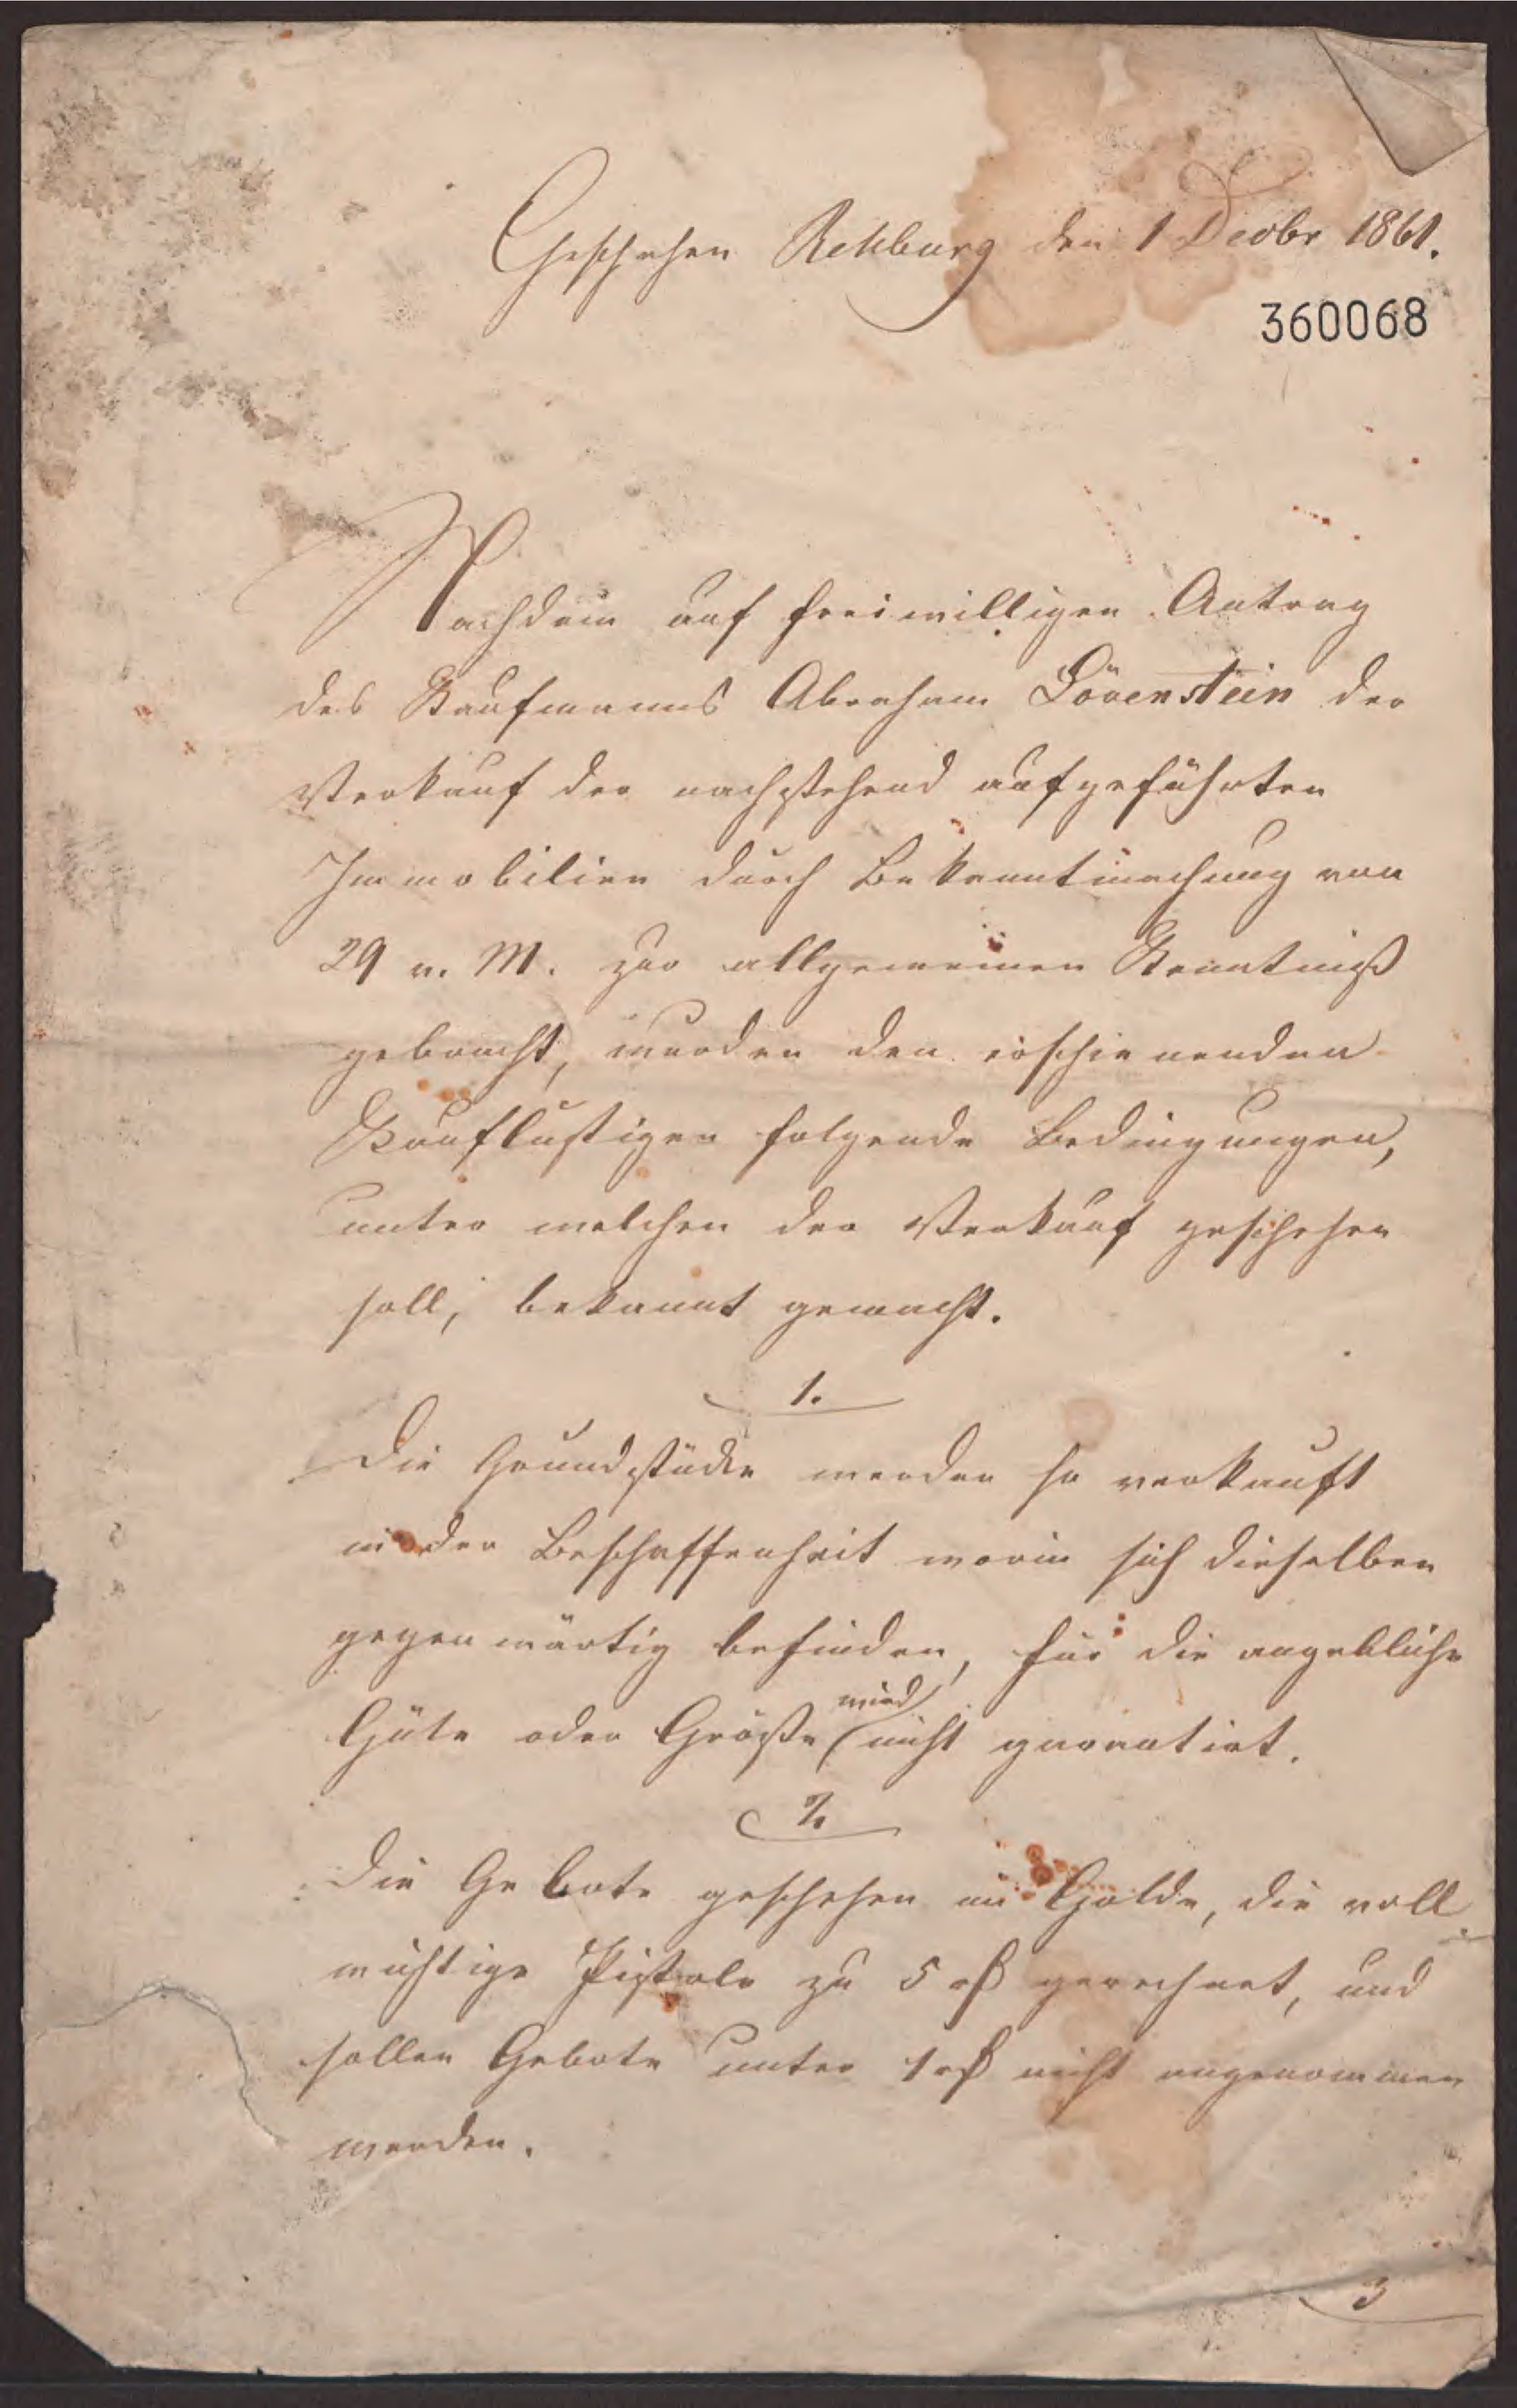 Geschehen Rehburg den 1 Decbr 1861.
360068
Nachdem auf freiwilligen Antrag
des Kaufmanns Abraham Lövenstein der
Verkauf der nachstehend aufgeführten
Immobilien durch Bekanntmachung von
29 v. M. zur allgemeinen Kenntniß
gebracht, wurden den erschienenden
Kauflustigen folgende Bedingungen,
unter welchen der Verkauf geschehen
soll, bekannt gemacht.
1.
Die Grundstücke werden so verkauft
in der Beschaffenheit worin sich dieselben
gegenwärtig befinden, für die angebliche
Güte oder Größe wird nicht garantirt.
2.
Die Gebote geschehen in Golde, die voll
wichtige Pistole zu 5 rß gerechnet, und
sollen Gebote unter 1 rß nicht angenommen
werden.
3